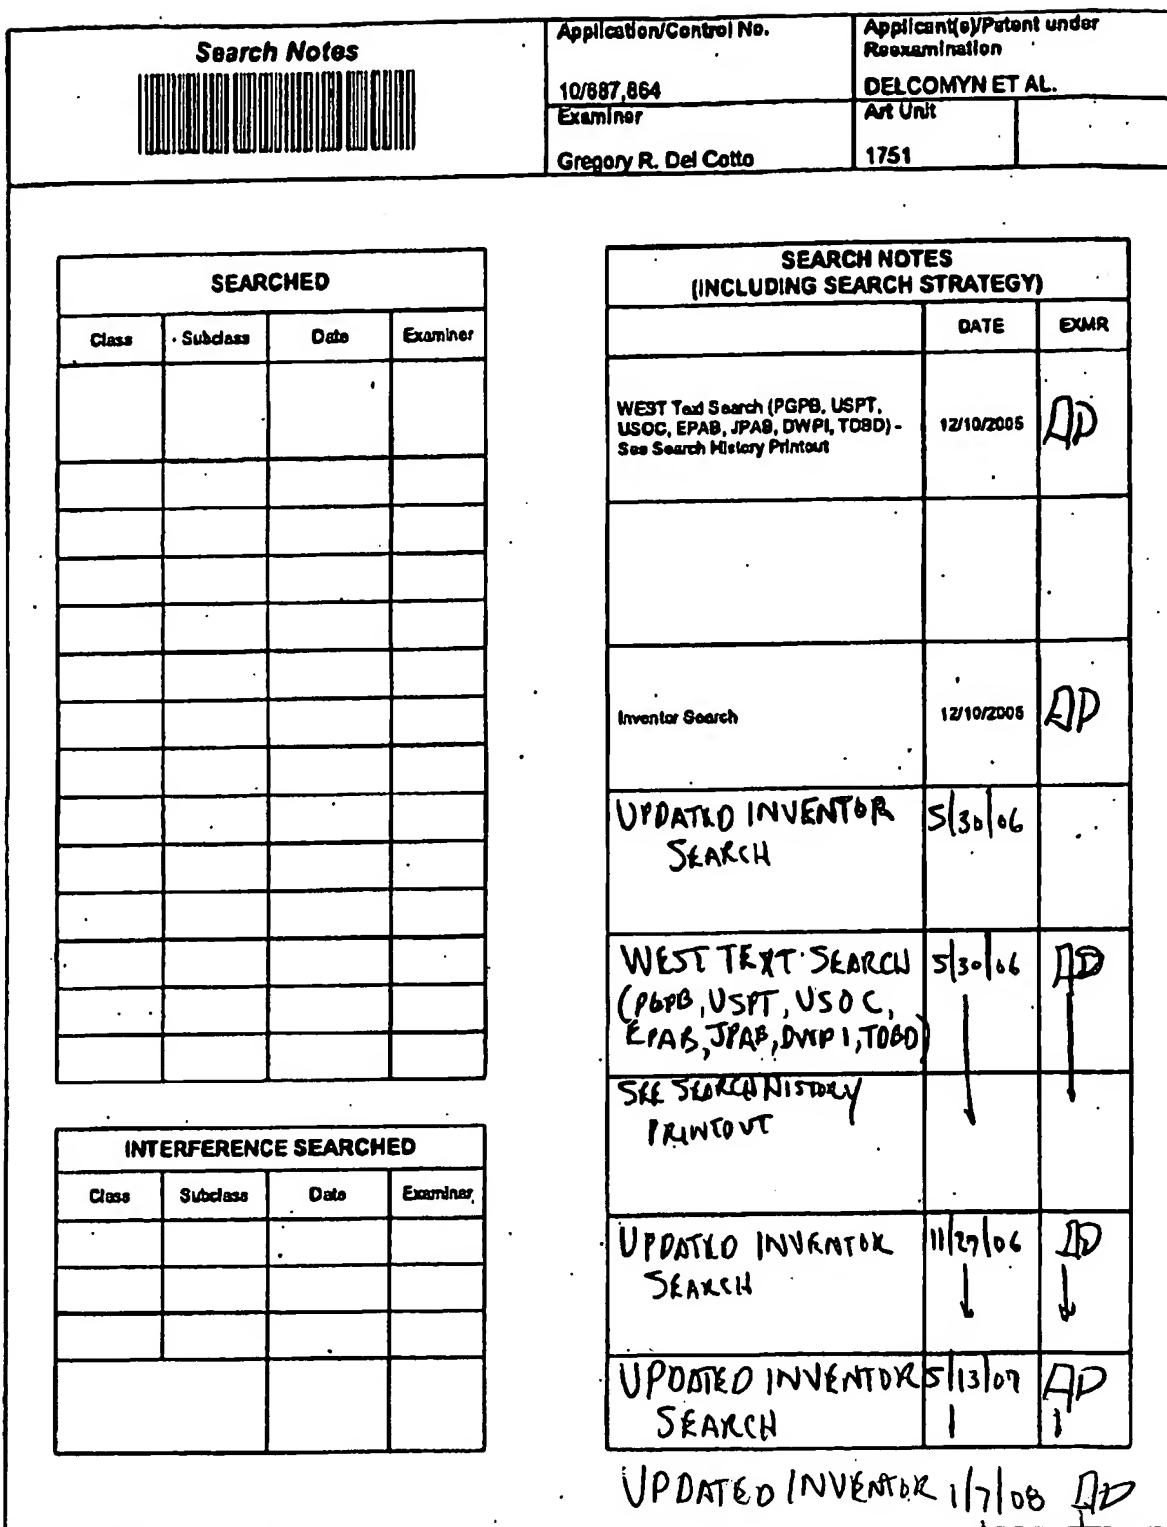 Search Notes
Application/Control No.
10/687,864
Applicant(s)/Patent under
Reexamination
DELCOMYN ET AL.
Examiner
Gregory R. Del Cotto
Art Unit
1751
SEARCHED
Class Subclass Date Examiner
INTERFERENCE SEARCHED
Class Subclass Date Examiner
SEARCH NOTES
(INCLUDING SEARCH STRATEGY)
DATE EXMR
WEST Text Search (PGPB, USPT,
USOC, EPAB, JPAB, DWPI, TDBD) -
See Search History Printout
12/10/2005
Inventor Search
12/10/2005
UPDATED INVENTOR 5/30/06
SEARCH
WEST TEXT SEARCH 5/30/06
(PGPB, USPT, USOC,
EPAB, JPAB, DWPI, TDBD)
SEE SEARCH HISTORY
PRINTOUT
UPDATED INVENTOR 11/27/06
SEARCH
UPDATED INVENTOR 5/13/07
SEARCH
UPDATED INVENTOR 1/7/08